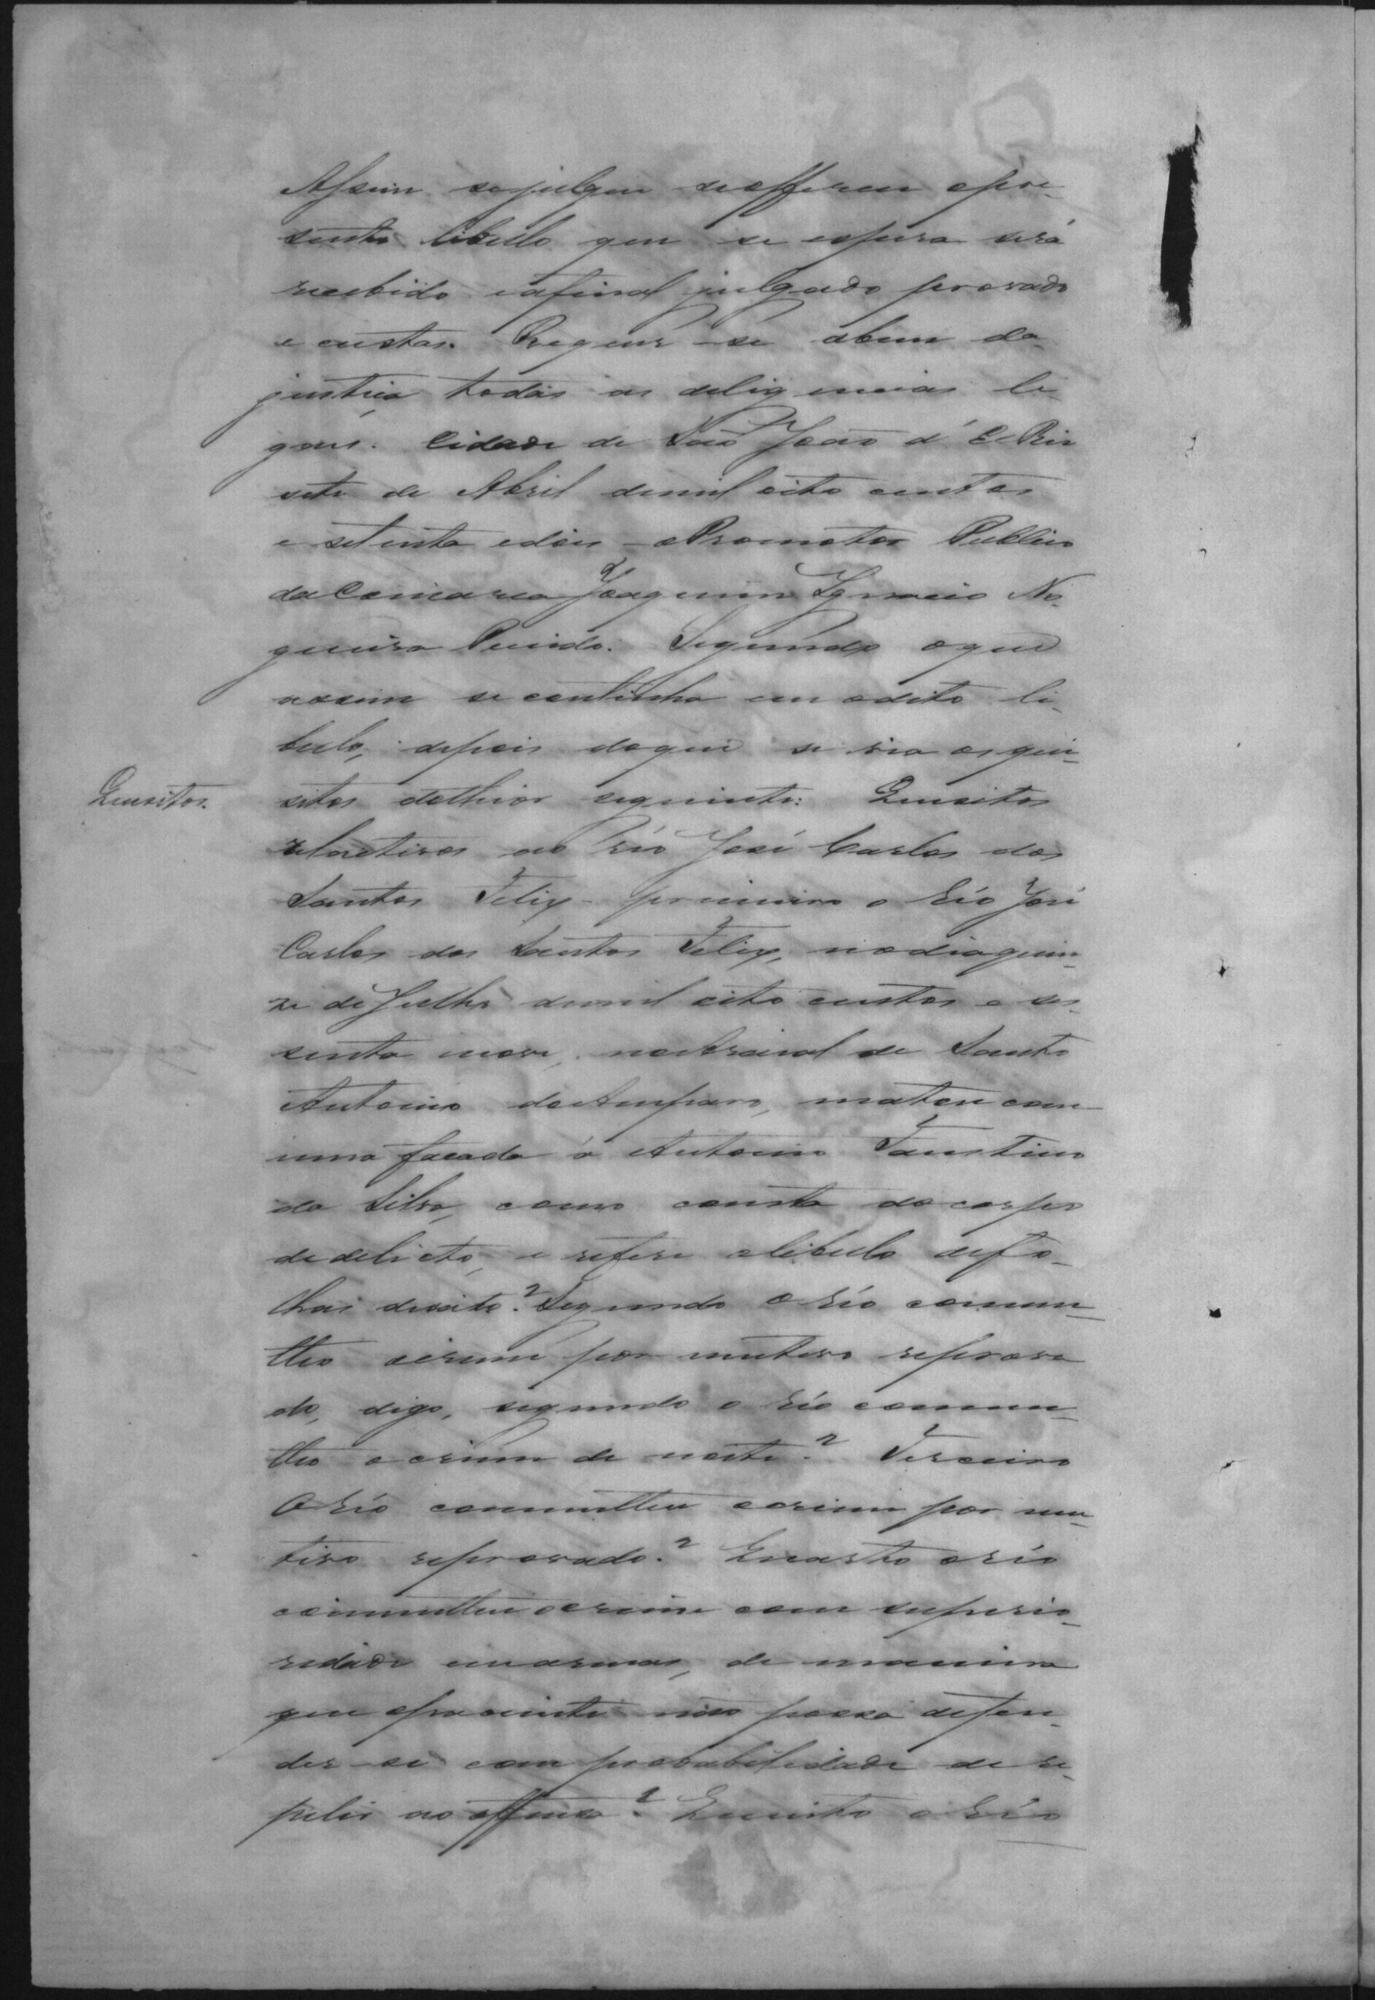 Assim se julgue se offerece o pre-
sente libello que se espera será
recebido e afinal julgado provado
e custas. Requer-se abem da
justiça todas as deligencias le-
gaes. Cidade de São João d'El Rei
sete de Abril de mil oito centos
e setenta e dois - o Promotor Publico
da Comarca Joaquim Ignacio No-
gueira Penido. Segundo o que
assim se continha em o dito li-
bello, depois do que se via os qui-
Quesitos.
sitos do theor seguinte: Quesitos
relactivos ao réo José Carlos dos
Santos Felix - primeiro o réo José
Carlos dos Santos Felix, no dia quin-
ze de Julho de mil oito centos e ses-
senta e nove, no arraial de Santo
Antonio do Amparo, matou com
uma facada á Antonio Faustino
da Silva, como consta do corpo
de delicto, e refere o libello de fo-
lhas desoito? Segundo o réo commet-
teo o crime por motivo reprova
do, digo, segundo o réo commet-
teo o crime de noite? Terceiro
O réo commetteu o crime por mo-
tivo reprovado? Quarto o réo
commetteu o crime com superio-
ridade em armas, de maneira
que o paciente não possa defen-
der-se com probabilidade de re-
pelir ao offensa? Quinto o réo